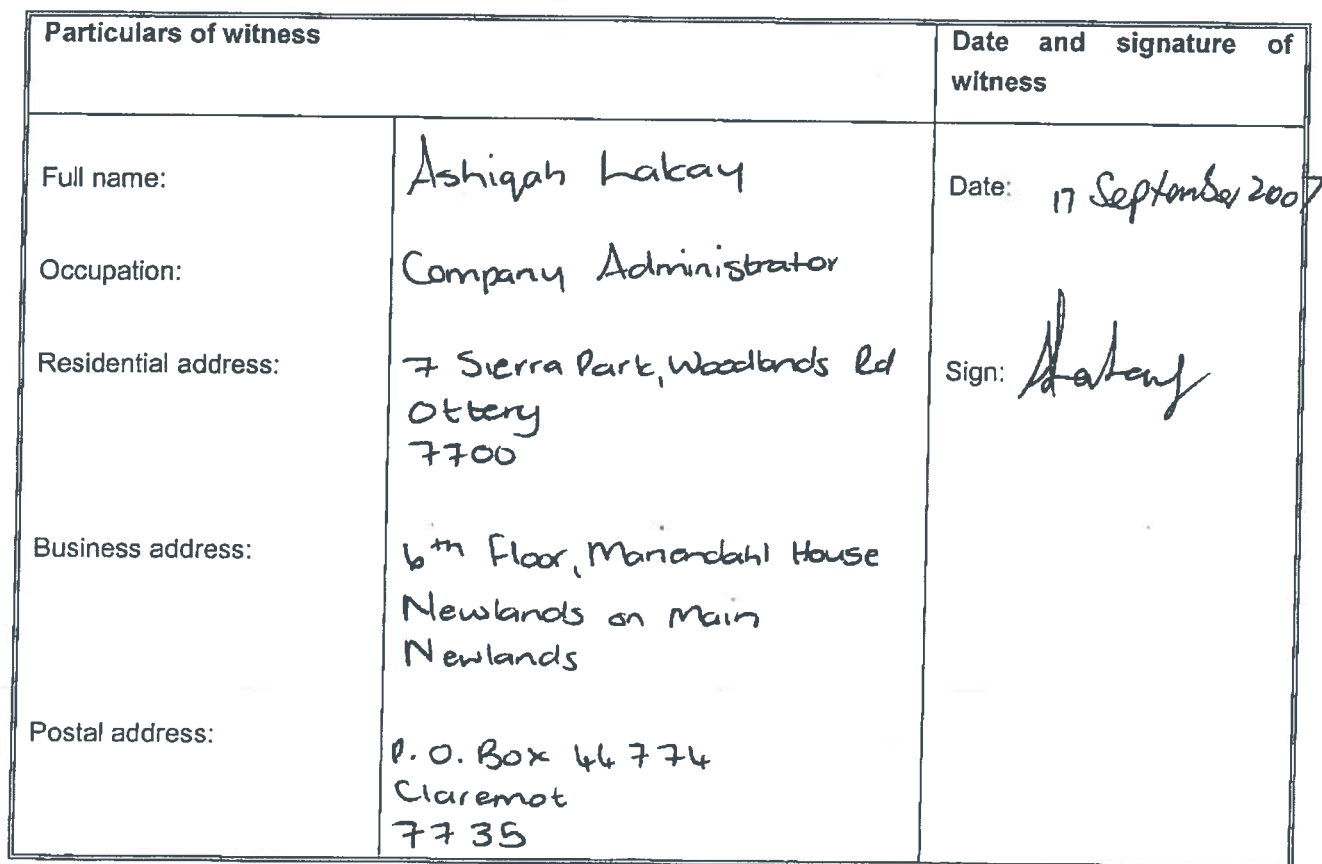 Particulars of witness
Date and signature of
witness
Full name:
Ashiqah Lakay
Date: 17 September 2007
Occupation:
Company Administrator
Residential address:
7 Sierra Park, Woodlands Rd
Ottery
7700
Sign:
Business address:
6th Floor, Mariendahl House
Newlands on Main
Newlands
Postal address:
P.O. Box 44774
Claremot
7735